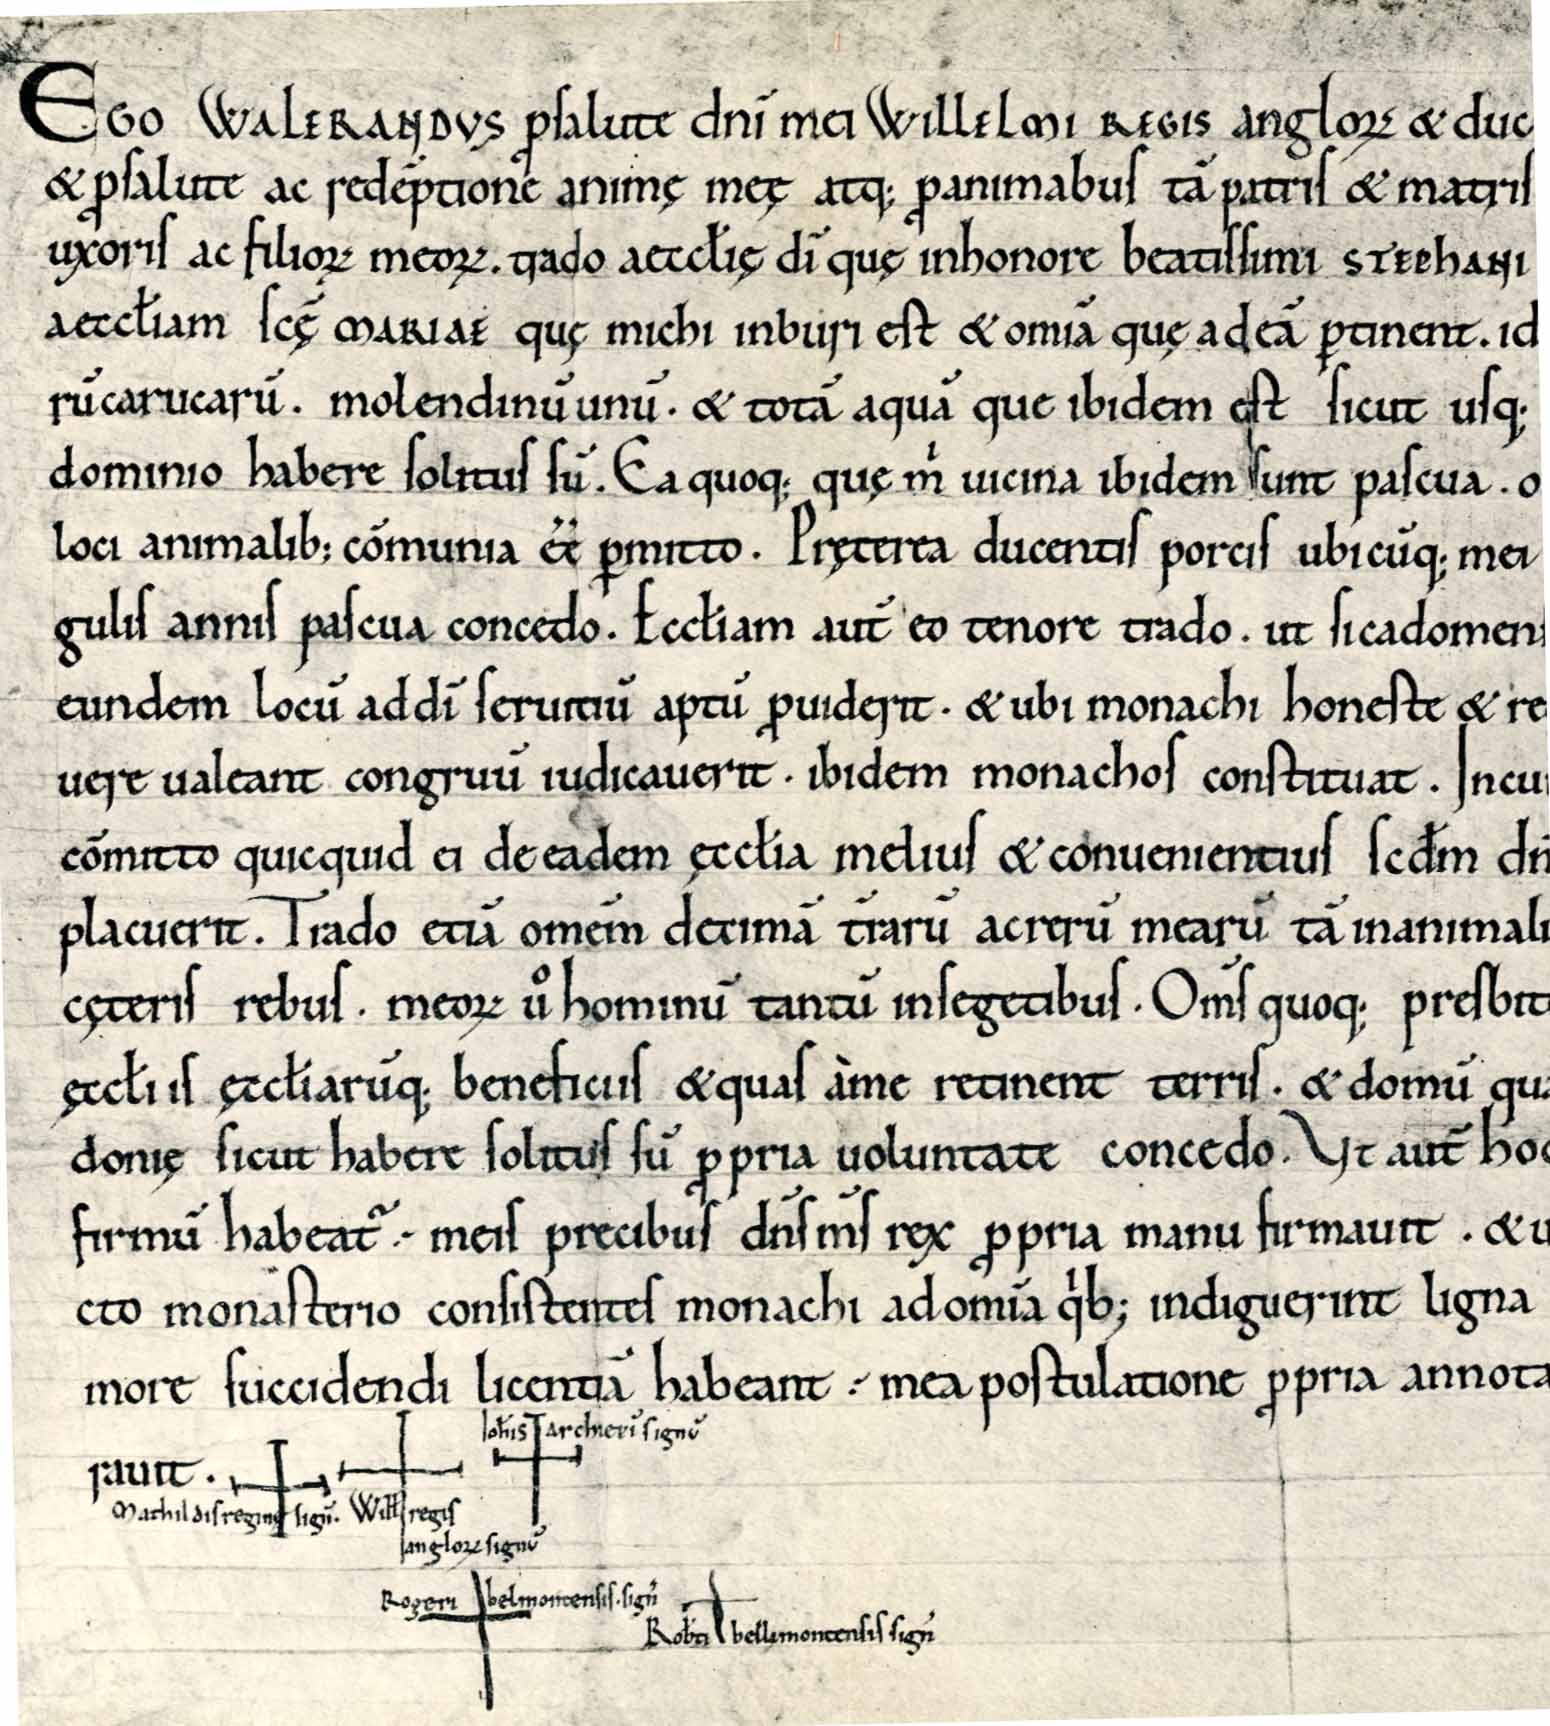 EGO WALERANDVS ꝓsalute dnī mei WILLELMI REGIS angloꝝ & duc
& ꝓsalute ac redēptionē animę meę atq; ꝓanimabus tā patris & matris
uxoris ac filioꝝ meoꝝ. trado aeccl̄ię dī quę inhonore beatissimi STEPHANI
aeccl̄iam scę̄ MARIAE quę michi inburi est & omīa quę adeā ꝑtinent. id
rū carucarū. molendinū unū. & totā aquā que ibidem est sicut usq;
dominio habere solitus sū. Ea quoq; quę m̄ uicina ibidem sunt pascua. o
loci animalib; cōmunia ēē ꝑmitto. Pręterea ducentis porcis ubicūq; mei
gulis annis pascua concedo. Eccl̄iam aut̄ eo tenore trado. ut sicadomeni
eundem locū addī seruitiū aptū ꝓuiderit. & ubi monachi honeste & re
uere ualeant congruū iudicauerit. ibidem monachos constituat. Incui
cōmitto quicquid ei de eadem ęccl̄ia melius & conuenientius scd̄m dn̄
placuerit. Trado etiā omēm decimā t̄rarū acrerū mearū tā inanimali
cęteris rebus. meoꝝ uº hominū tantū insegetibus. Om̄s quoq; presbit
ęccl̄iis ęccl̄iarūq; beneficiis & quas àme retinent terris. & domū qua
donię sicut habere solitus sū ꝓpria uoluntate concedo. Vt aut̄ hoc
firmū habeat᷑ .- meis precibus dn̄s m̄s rex ꝓpria manu firmauit. & u
cto monasterio consistentes monachi adomīa qͥb; indiguerint ligna
more succidendi licentiā habeant .- mea postulatione ꝓpria annota
rauit.
Ioh̄is archieṗi signū
Mathildis reginę signū. Will̄ regis
angloꝝ signū
Rogeri belmontensis. sign̄
Rob̄ti bellimontensis sign̄